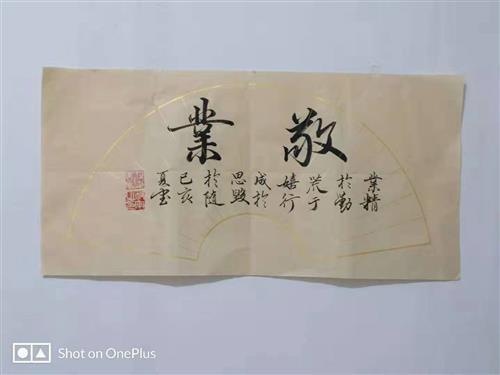 敬業
業精
於勤
荒于
嬉行
成於
思毀
於隨
己亥
夏書
Shot on OnePlus